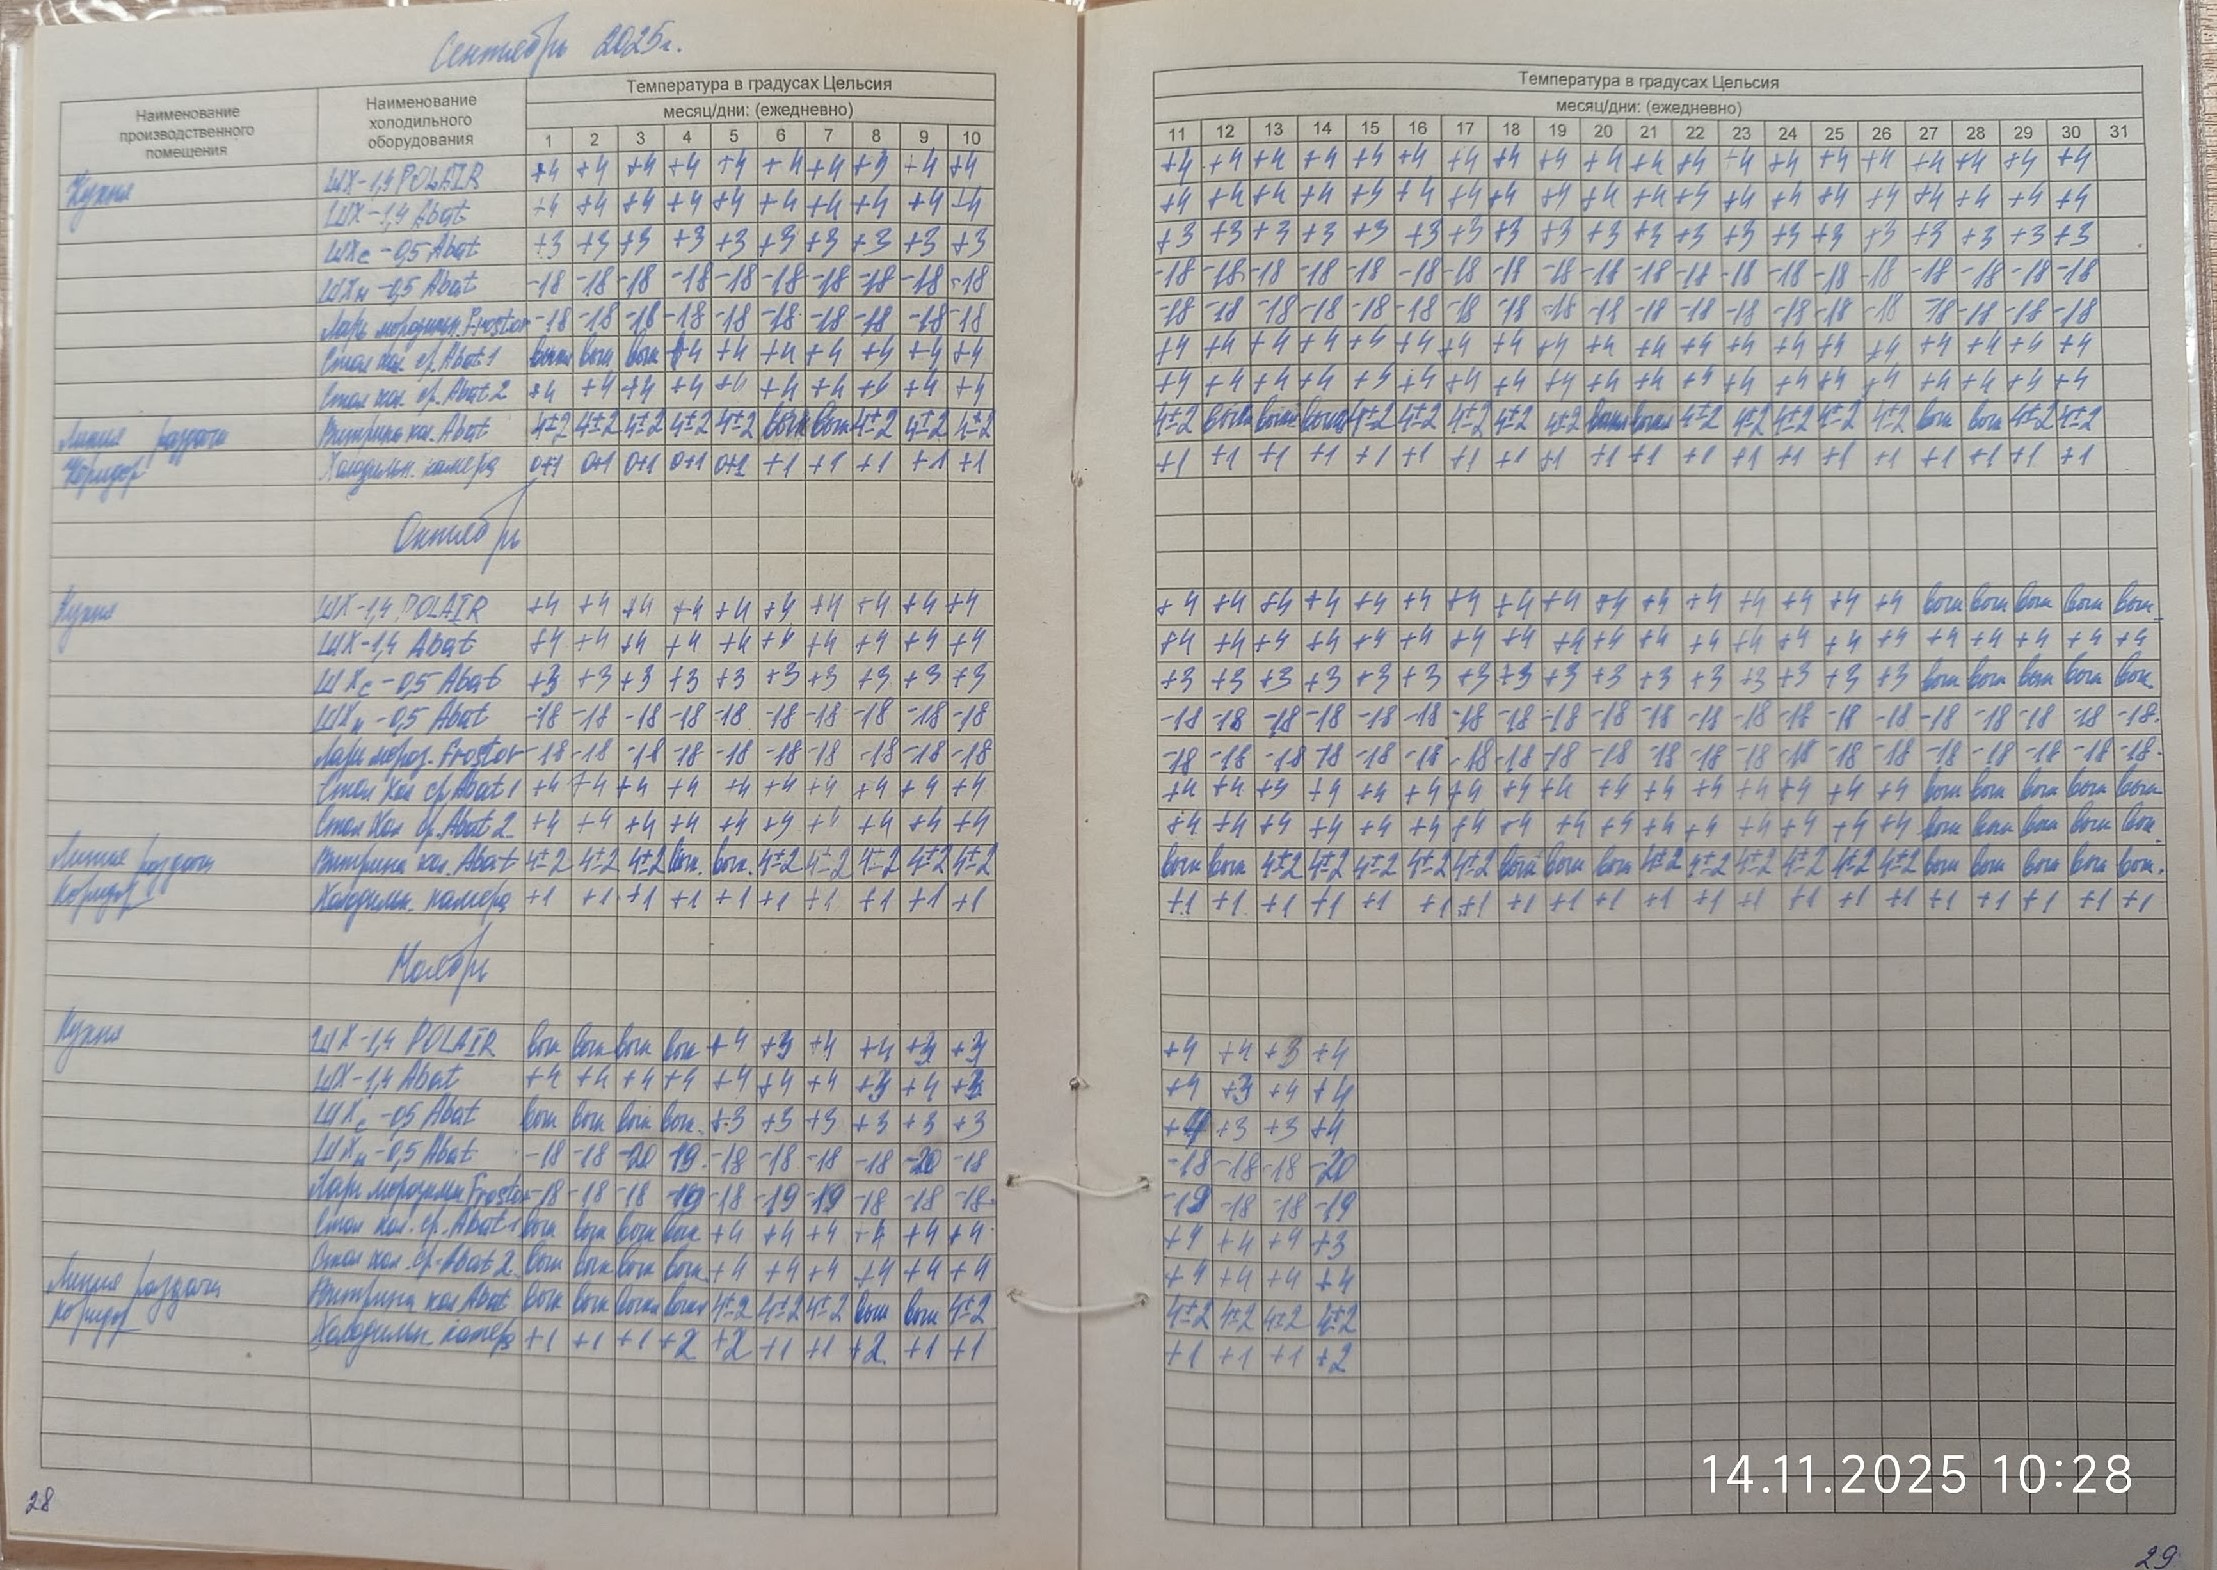 Сентябрь 2025г.
Наименование производственного помещения
Наименование холодильного оборудования
Температура в градусах Цельсия
месяц/дни: (ежедневно)
1 2 3 4 5 6 7 8 9 10
Температура в градусах Цельсия
месяц/дни: (ежедневно)
11 12 13 14 15 16 17 18 19 20 21 22 23 24 25 26 27 28 29 30 31
Кухня ШХ-1,4 POLAIR +4 +4 +4 +4 +4 +4 +4 +3 +4 +4 +4 +4 +4 +4 +4 +4 +4 +4 +4 +4 +4 +4 +4 +4 +4 +4 +4 +4 +4 +4
ШХ-1,4 Abat +4 +4 +4 +4 +4 +4 +4 +4 +4 +4 +4 +4 +4 +4 +3 +4 +4 +4 +4 +4 +4 +4 +4 +4 +4 +4 +4 +4 +4 +4
ШХс-0,5 Abat +3 +3 +3 +3 +3 +3 +3 +3 +3 +3 +3 +3 +3 +3 +3 +3 +3 +3 +3 +3 +3 +3 +3 +3 +3 +3 +3 +3 +3 +3
ШХн-0,5 Abat -18 -18 -18 -18 -18 -18 -18 -18 -18 -18 -18 -18 -18 -18 -18 -18 -18 -18 -18 -18 -18 -18 -18 -18 -18 -18 -18 -18 -18 -18
Ларь морозильн. Frostor -18 -18 -18 -18 -18 -18 -18 -18 -18 -18 -18 -18 -18 -18 -18 -18 -18 -18 -18 -18 -18 -18 -18 -18 -18 -18 -18 -18 -18 -18
Стол хол. ср. Abat 1 выкл выкл выкл +4 +4 +4 +4 +4 +4 +4 +4 +4 +4 +4 +4 +4 +4 +4 +4 +4 +4 +4 +4 +4 +4 +4 +4 +4 +4 +4
Стол хол. ср. Abat 2 +4 +4 +4 +4 +4 +4 +4 +4 +4 +4 +4 +4 +4 +4 +3 +4 +4 +4 +4 +4 +4 +4 +4 +4 +4 +4 +4 +4 +4 +4
Линия раздачи Витрина хол. Abat 4±2 4±2 4±2 4±2 4±2 выкл выкл 4±2 4±2 4±2 4±2 выкл выкл выкл 4±2 4±2 4±2 4±2 4±2 выкл выкл 4±2 4±2 4±2 4±2 4±2 выкл выкл 4±2 4±2
Коридор Холодильн. камера 0+1 0+1 0+1 0+1 0+1 +1 +1 +1 +1 +1 +1 +1 +1 +1 +1 +1 +1 +1 +1 +1 +1 +1 +1 +1 +1 +1 +1 +1 +1 +1
Октябрь
Кухня ШХ-1,4 POLAIR +4 +4 +4 +4 +4 +4 +4 +4 +4 +4 +4 +4 +4 +4 +4 +4 +4 +4 +4 +4 +4 +4 +4 +4 +4 +4 выкл выкл выкл выкл выкл
ШХ-1,4 Abat +4 +4 +4 +4 +4 +4 +4 +4 +4 +4 +4 +4 +4 +4 +4 +4 +4 +4 +4 +4 +4 +4 +4 +4 +4 +4 +4 +4 +4 +4 +4
ШХс-0,5 Abat +3 +3 +3 +3 +3 +3 +3 +3 +3 +3 +3 +3 +3 +3 +3 +3 +3 +3 +3 +3 +3 +3 +3 +3 +3 +3 выкл выкл выкл выкл выкл
ШХн-0,5 Abat -18 -18 -18 -18 -18 -18 -18 -18 -18 -18 -18 -18 -18 -18 -18 -18 -18 -18 -18 -18 -18 -18 -18 -18 -18 -18 -18 -18 -18 -18 -18
Ларь мороз. Frostor -18 -18 -18 -18 -18 -18 -18 -18 -18 -18 -18 -18 -18 -18 -18 -18 -18 -18 -18 -18 -18 -18 -18 -18 -18 -18 -18 -18 -18 -18 -18
Стол хол ср Abat 1 +4 +4 +4 +4 +4 +4 +4 +4 +4 +4 +4 +4 +3 +4 +4 +4 +4 +4 +4 +4 +4 +4 +4 +4 +4 +4 выкл выкл выкл выкл выкл
Стол хол ср. Abat 2 +4 +4 +4 +4 +4 +4 +4 +4 +4 +4 +4 +4 +4 +4 +4 +4 +4 +4 +4 +4 +4 +4 +4 +4 +4 +4 выкл выкл выкл выкл выкл
Линия раздачи Витрина хол. Abat 4±2 4±2 4±2 выкл. выкл. 4±2 4±2 4±2 4±2 4±2 выкл выкл 4±2 4±2 4±2 4±2 4±2 выкл выкл выкл 4±2 4±2 4±2 4±2 4±2 4±2 выкл выкл выкл выкл выкл.
Коридор Холодильн. камера +1 +1 +1 +1 +1 +1 +1 +1 +1 +1 +1 +1 +1 +1 +1 +1 +1 +1 +1 +1 +1 +1 +1 +1 +1 +1 +1 +1 +1 +1 +1
Ноябрь
Кухня ШХ-1,4 POLAIR выкл выкл выкл выкл +4 +3 +4 +4 +3 +3 +4 +4 +3 +4
ШХ-1,4 Abat +4 +4 +4 +4 +4 +4 +4 +3 +4 +3 +4 +3 +4 +4
ШХс-05 Abat выкл выкл выкл выкл. +3 +3 +3 +3 +3 +3 +4 +3 +3 +4
ШХн-0,5 Abat -18 -18 -20 19 -18 -18 -18 -18 -20 -18 -18 -18 -18 -20
Ларь морозильн Frostor -18 -18 -18 -19 -18 -19 -19 -18 -18 -18 -19 -18 -18 -19
Стол хол. ср. Abat 1 выкл выкл выкл выкл +4 +4 +4 +4 +4 +4 +4 +4 +4 +3
Стол хол. ср. Abat 2 выкл выкл выкл выкл +4 +4 +4 +4 +4 +4 +4 +4 +4 +4
Линия раздачи Витрина хол Abat выкл выкл выкл выкл 4±2 4±2 4±2 выкл выкл 4±2 4±2 4±2 4±2 4±2
Коридор Холодильн камера +1 +1 +1 +2 +2 +1 +1 +2 +1 +1 +1 +1 +1 +2
14.11.2025 10:28
28
29